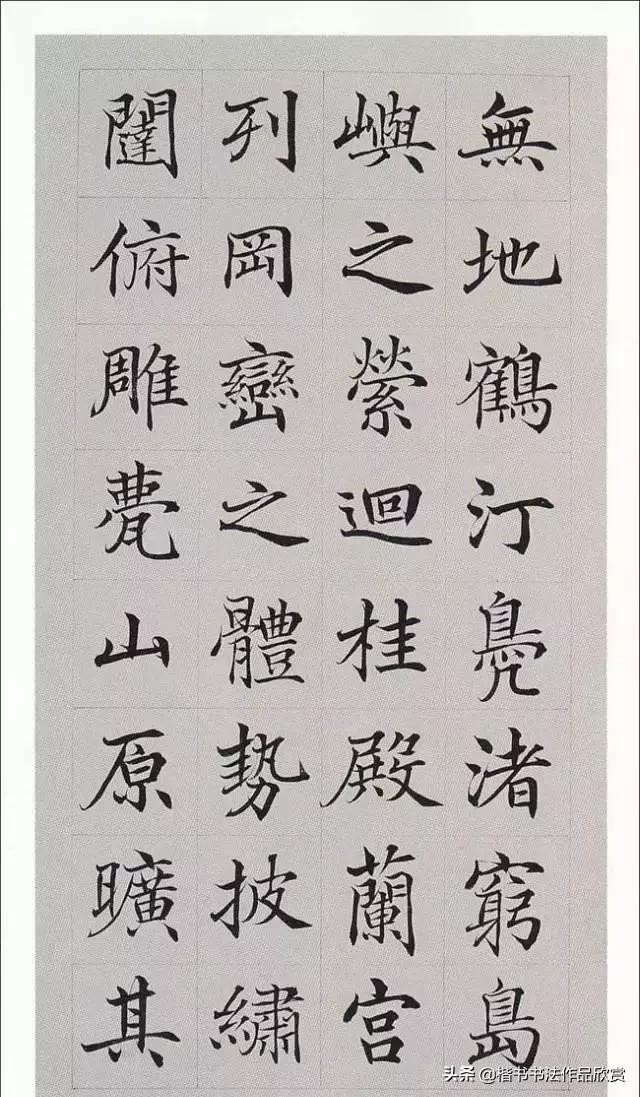 無地鶴汀鳧渚窮島
嶼之縈迴桂殿蘭宮
列岡巒之體勢披繡
闥俯雕甍山原曠其
头条 @楷书书法作品欣赏